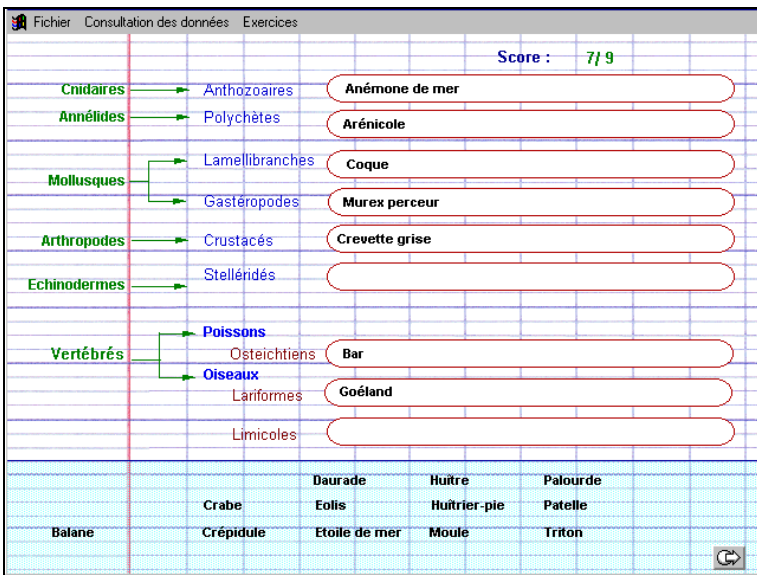 Fichier Consultation des données Exercices
Score : 7/ 9
Cnidaires Anthozoaires Anémone de mer
Annélides Polychètes Arénicole
Lamellibranches Coque
Mollusques
Gastéropodes Murex perceur
Arthropodes Crustacés Crevette grise
Stelléridés
Echinodermes
Poissons
Vertébrés Osteichtiens Bar
Oiseaux
Lariformes Goéland
Limicoles
Daurade Huître Palourde
Crabe Eolis Huîtrier-pie Patelle
Balane Crépidule Etoile de mer Moule Triton